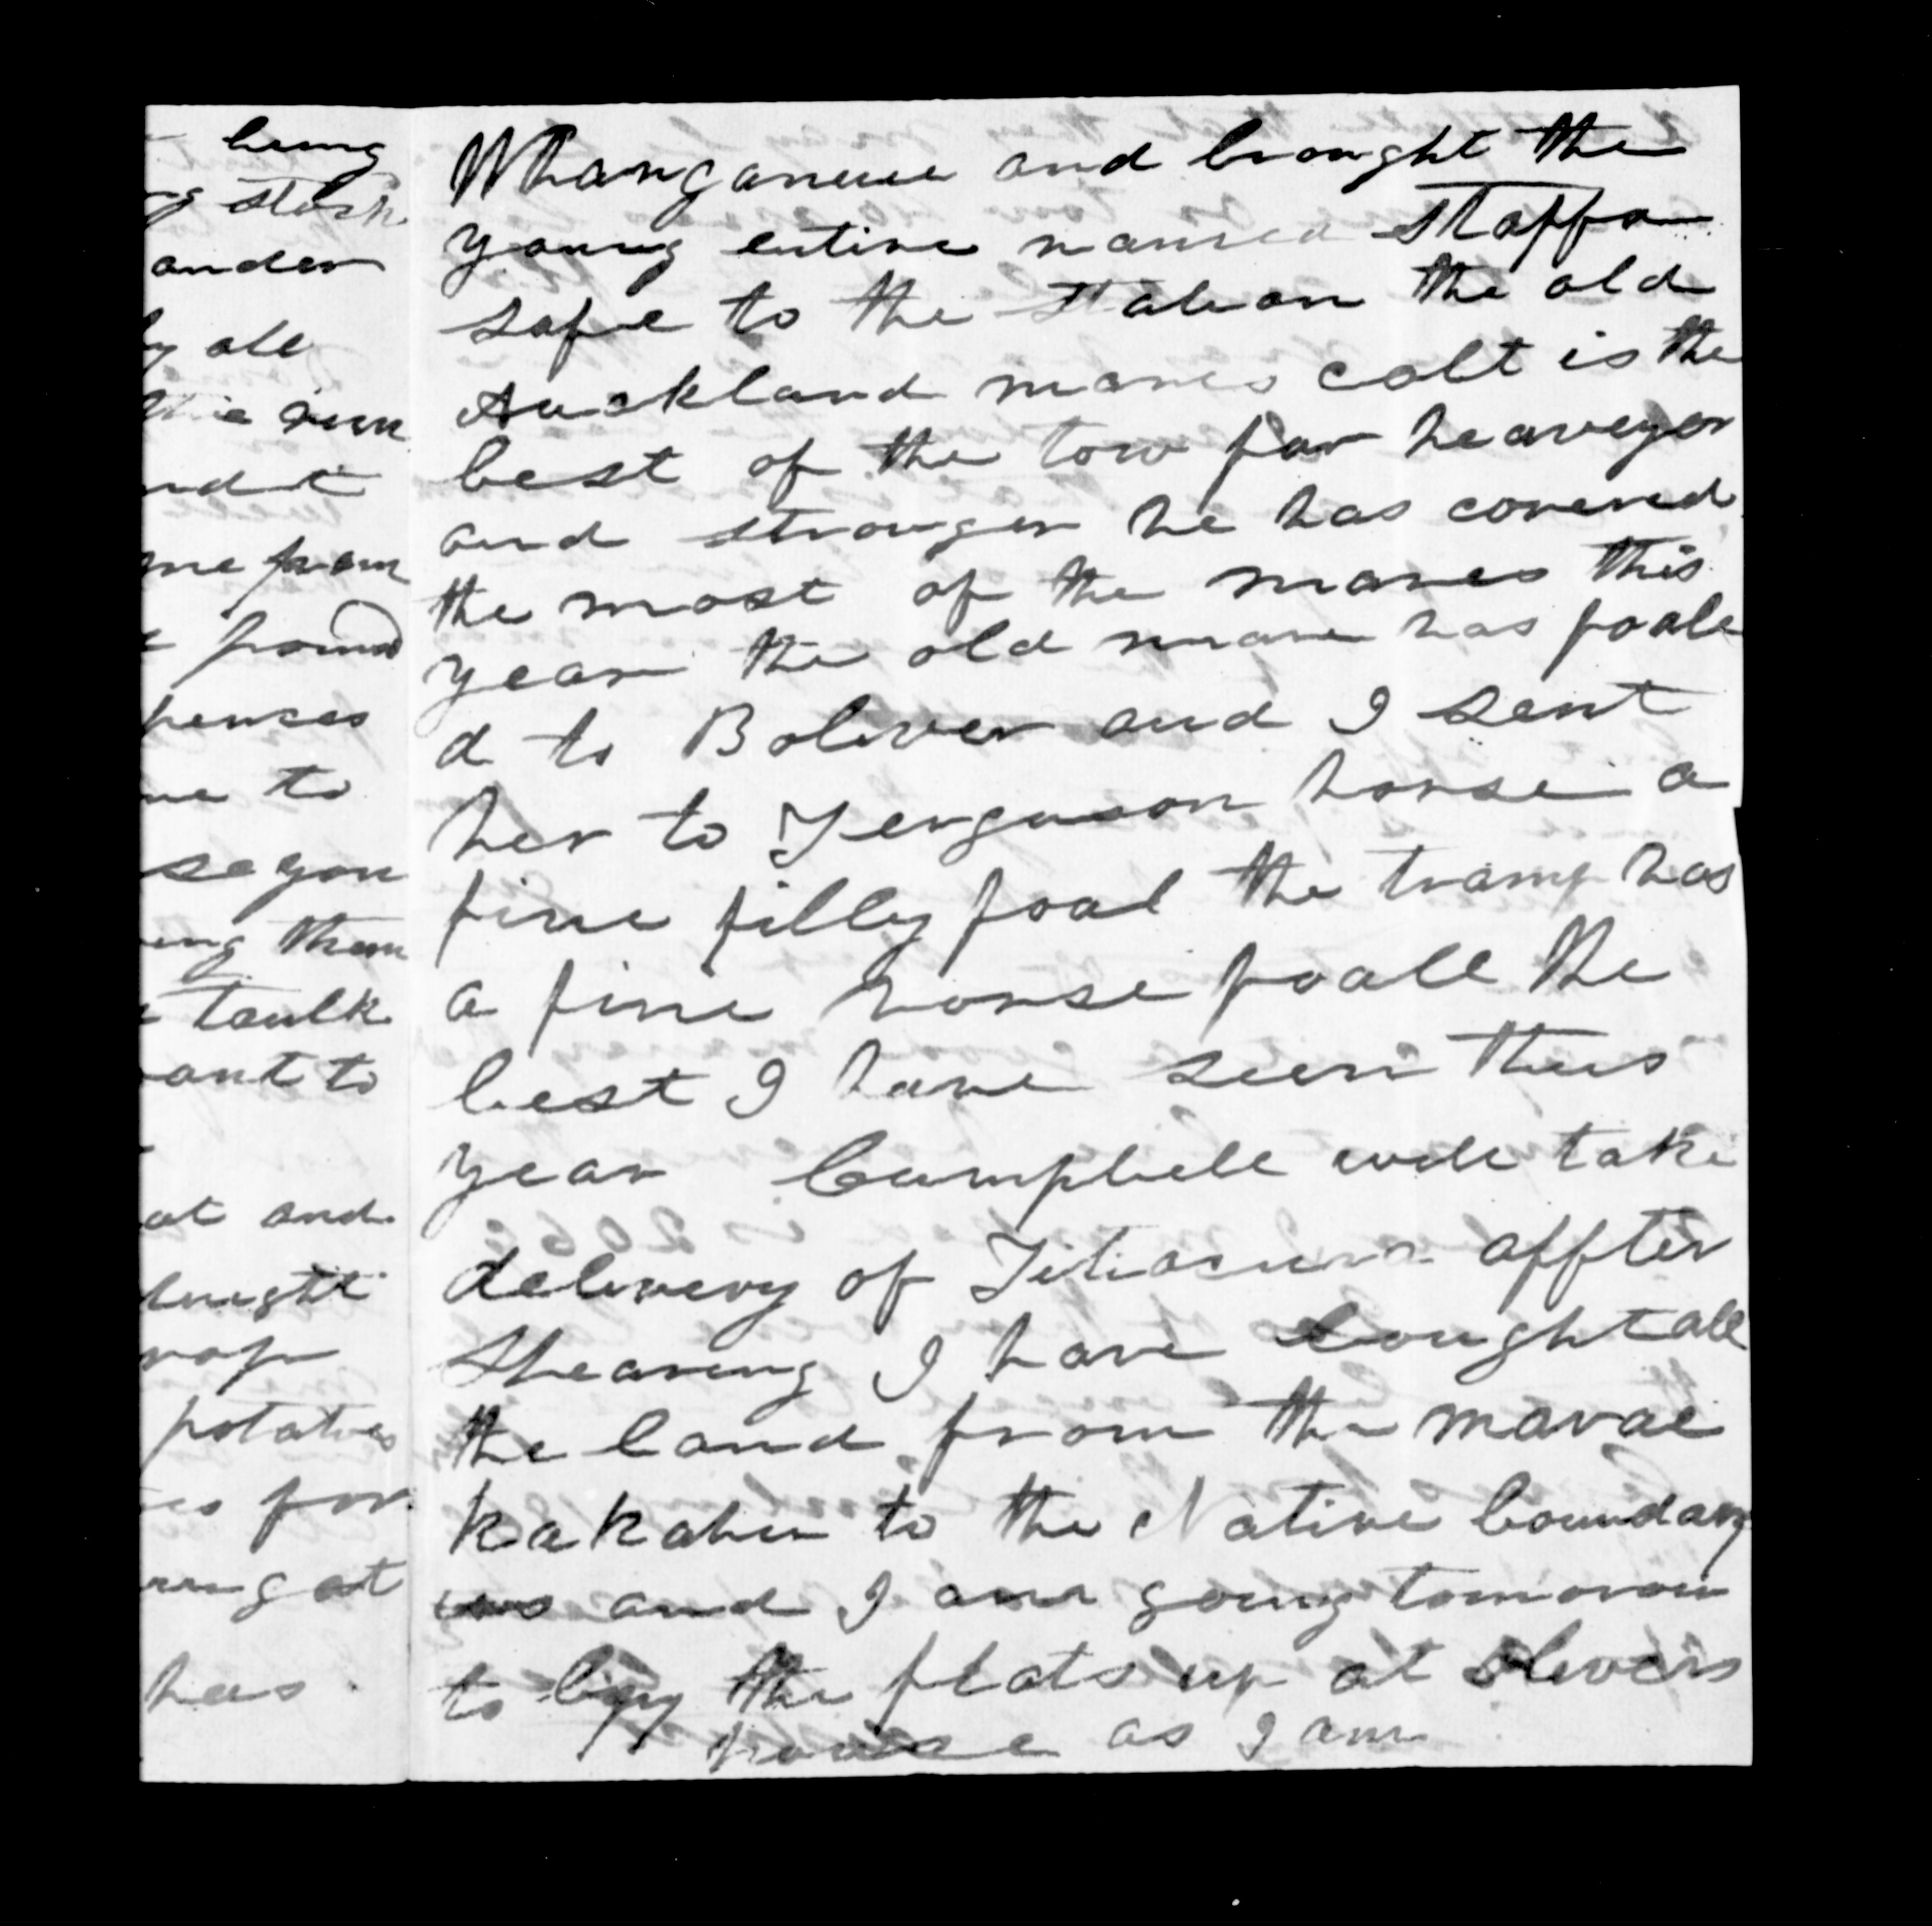 being
stock
ander
all
run
me from
pound
penses
to
se you
ing them
taulk
ant to
at and
potatoes
for
at
has
Whanganuie and brought the
young entire named Staffa
safe to the Station the old
Auckland mares colt is the
best of the tow far heaveyer
and stronger he has covered
the most of the mares this
year the old mare has foale
d to Boliver and I sent
her to Ferguson horse a
fine filly foal the tramp has
a fine horse foall the
best I have seen this
year Campbell will take
delivery of affter
Shearing I have bought all
the land from the marae
Kakahu to the Native boundary
and I am going tomorow
to buy the flats up at Olivers
house as I am